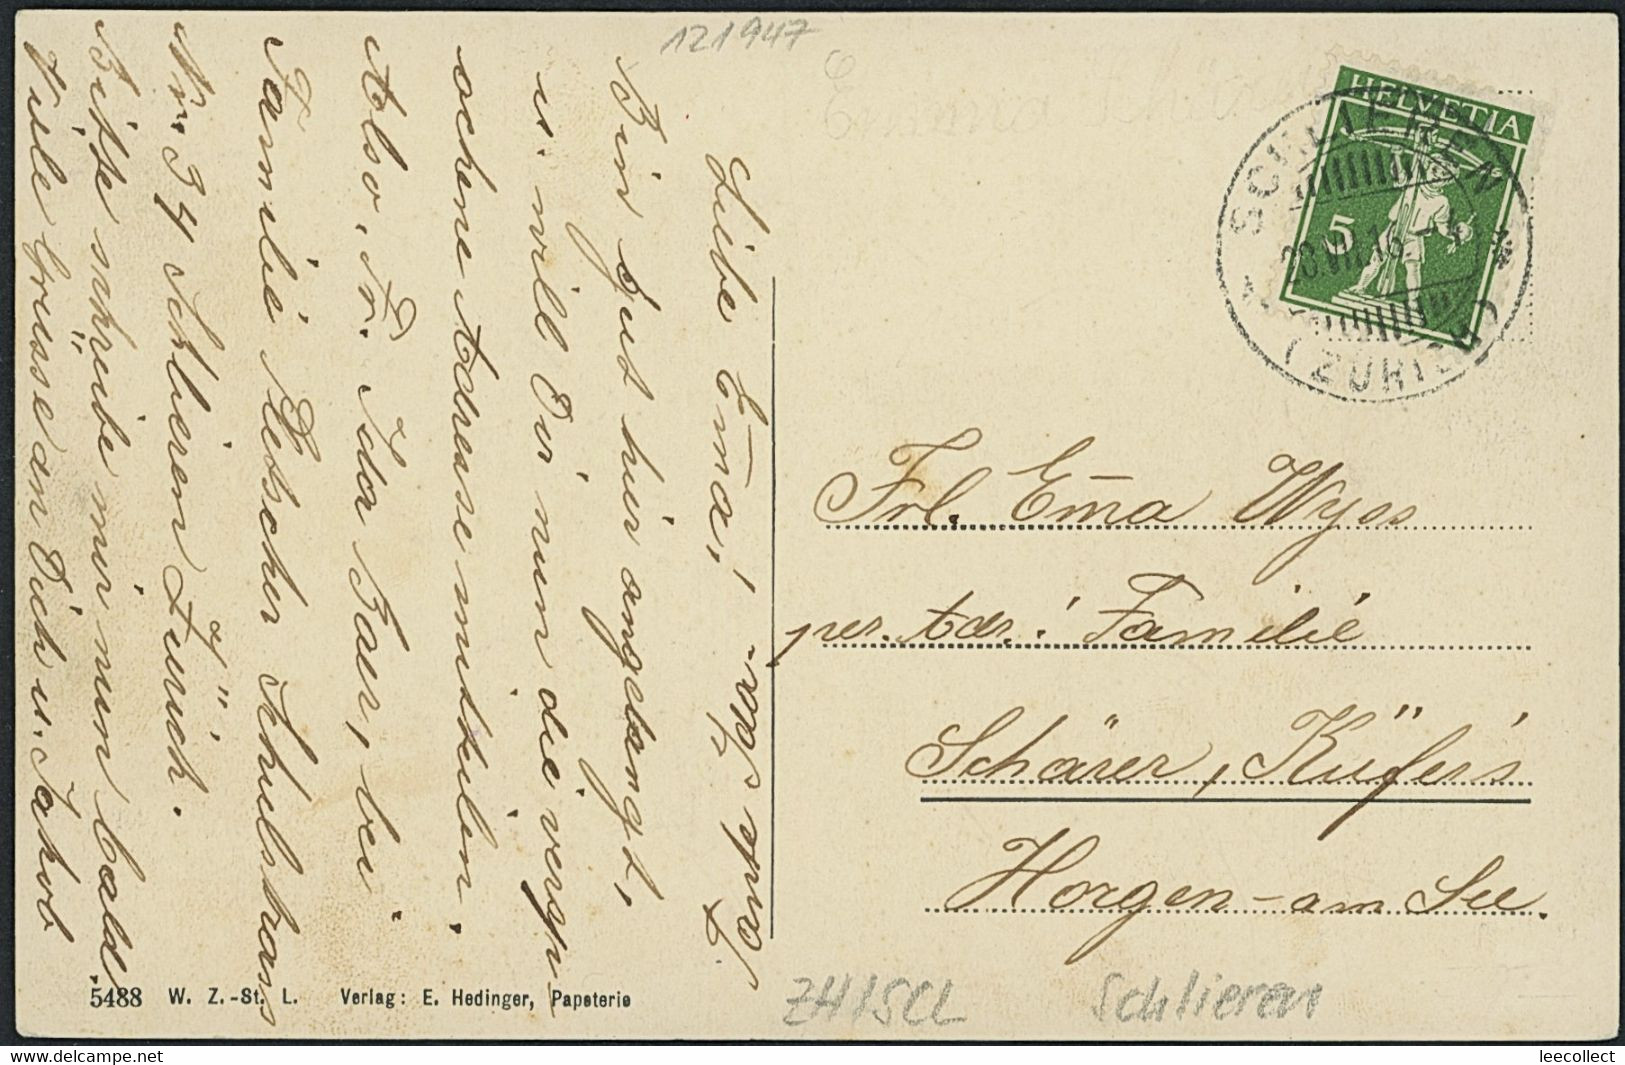 121947
HELVETIA
5
SCHLIEREN
(ZÜRICH)
Liebe Em̄a!
Bin Gut hier angelangt,
u. will Dir nun die verspr
ochene Adresse mitteilen.
Also, Fr. Ida Baur, bei
Familie Schulhaus
Nr. 34 Schlieren Zürich.
Bitte schreibe mir nun bald
Viele Grüsse an Dich u. Jakob
Frl. Em̄a Wyss
per. Adr. : Familie
Schärer, Küfers
Horgen-am See.
5488 W. Z.-St. L. Verlag: E. Hedinger, Papeterie
ZH15CL Schlieren
leecollect